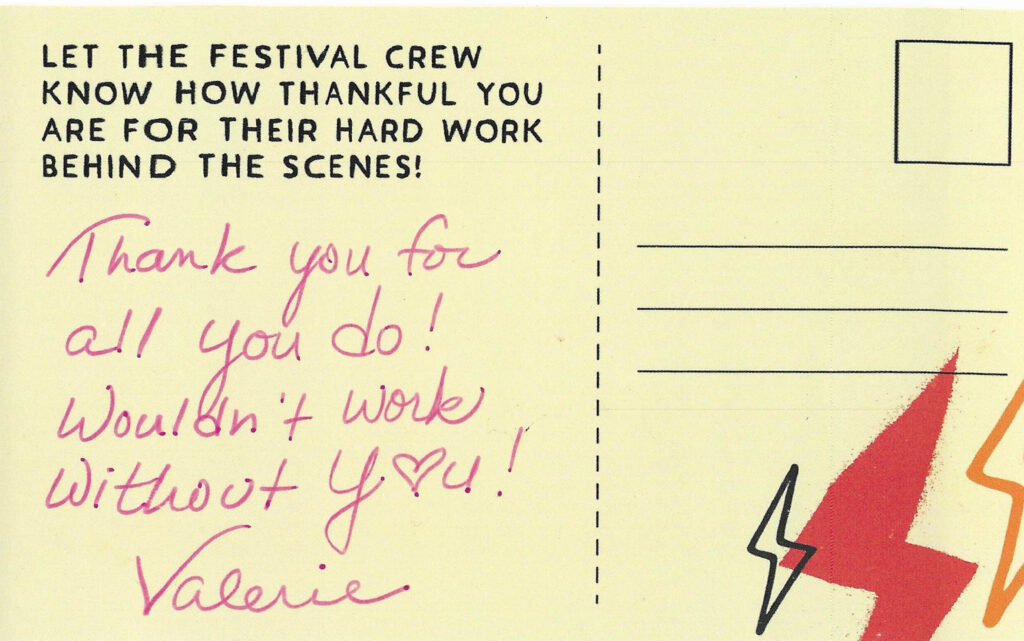 LET THE FESTIVAL CREW
KNOW HOW THANKFUL YOU
ARE FOR THEIR HARD WORK
BEHIND THE SCENES!
Thank you for
all you do!
Wouldn't work
without Y♡u!
Valerie